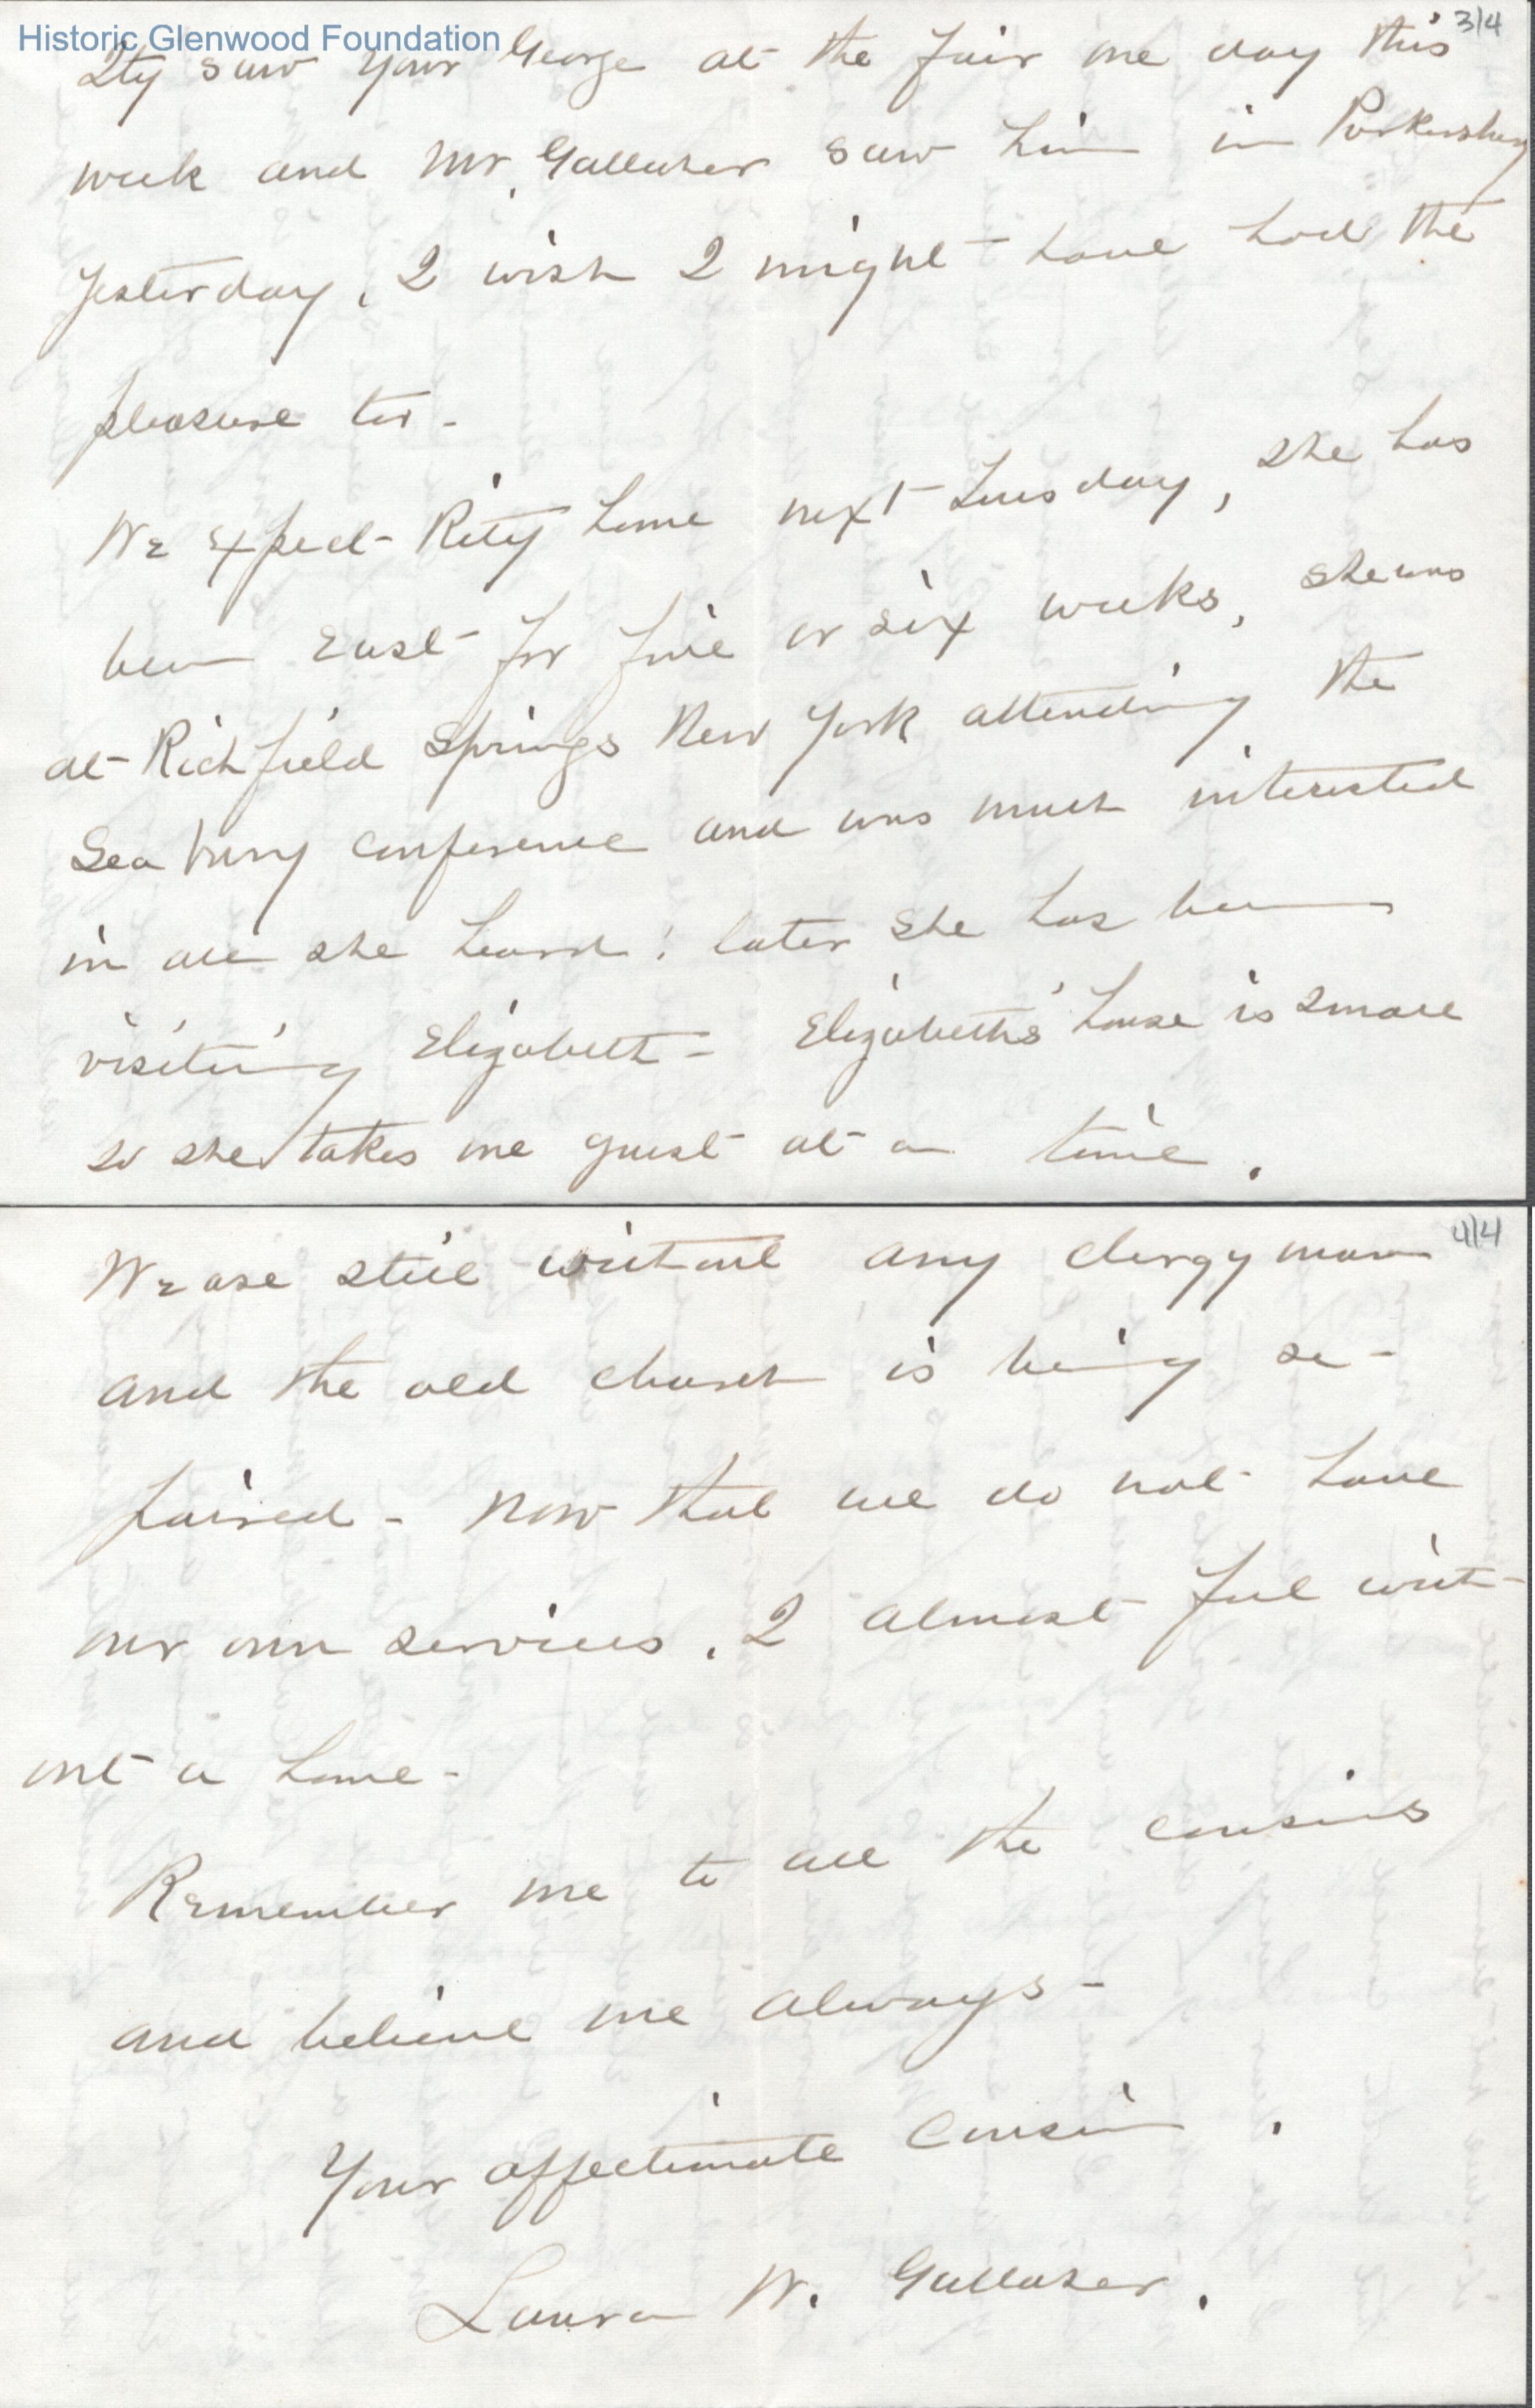 Historic Glenwood Foundation
3/4
saw your George at the fair one day this
week and Mr. Gallaher saw him in Parkersburg
yesterday, I wish I might have had the
pleasure too -
We expect Rity home next Tuesday, she has
been East for five or six weeks, she was
at Richfield Springs New York attending the
Seabury conference and was much interested
in all she heard; later she has been
visiting Elizabeth - Elizabeth's house is small
so she takes one guest at a time.
4/4
We are still without any clergyman
and the old church is being re-
paired - Now that we do not have
our own services, I almost feel with-
out a home -
Remember me to all the cousins
and believe me always -
Your affectionate cousin,
Laura W. Gallaher.